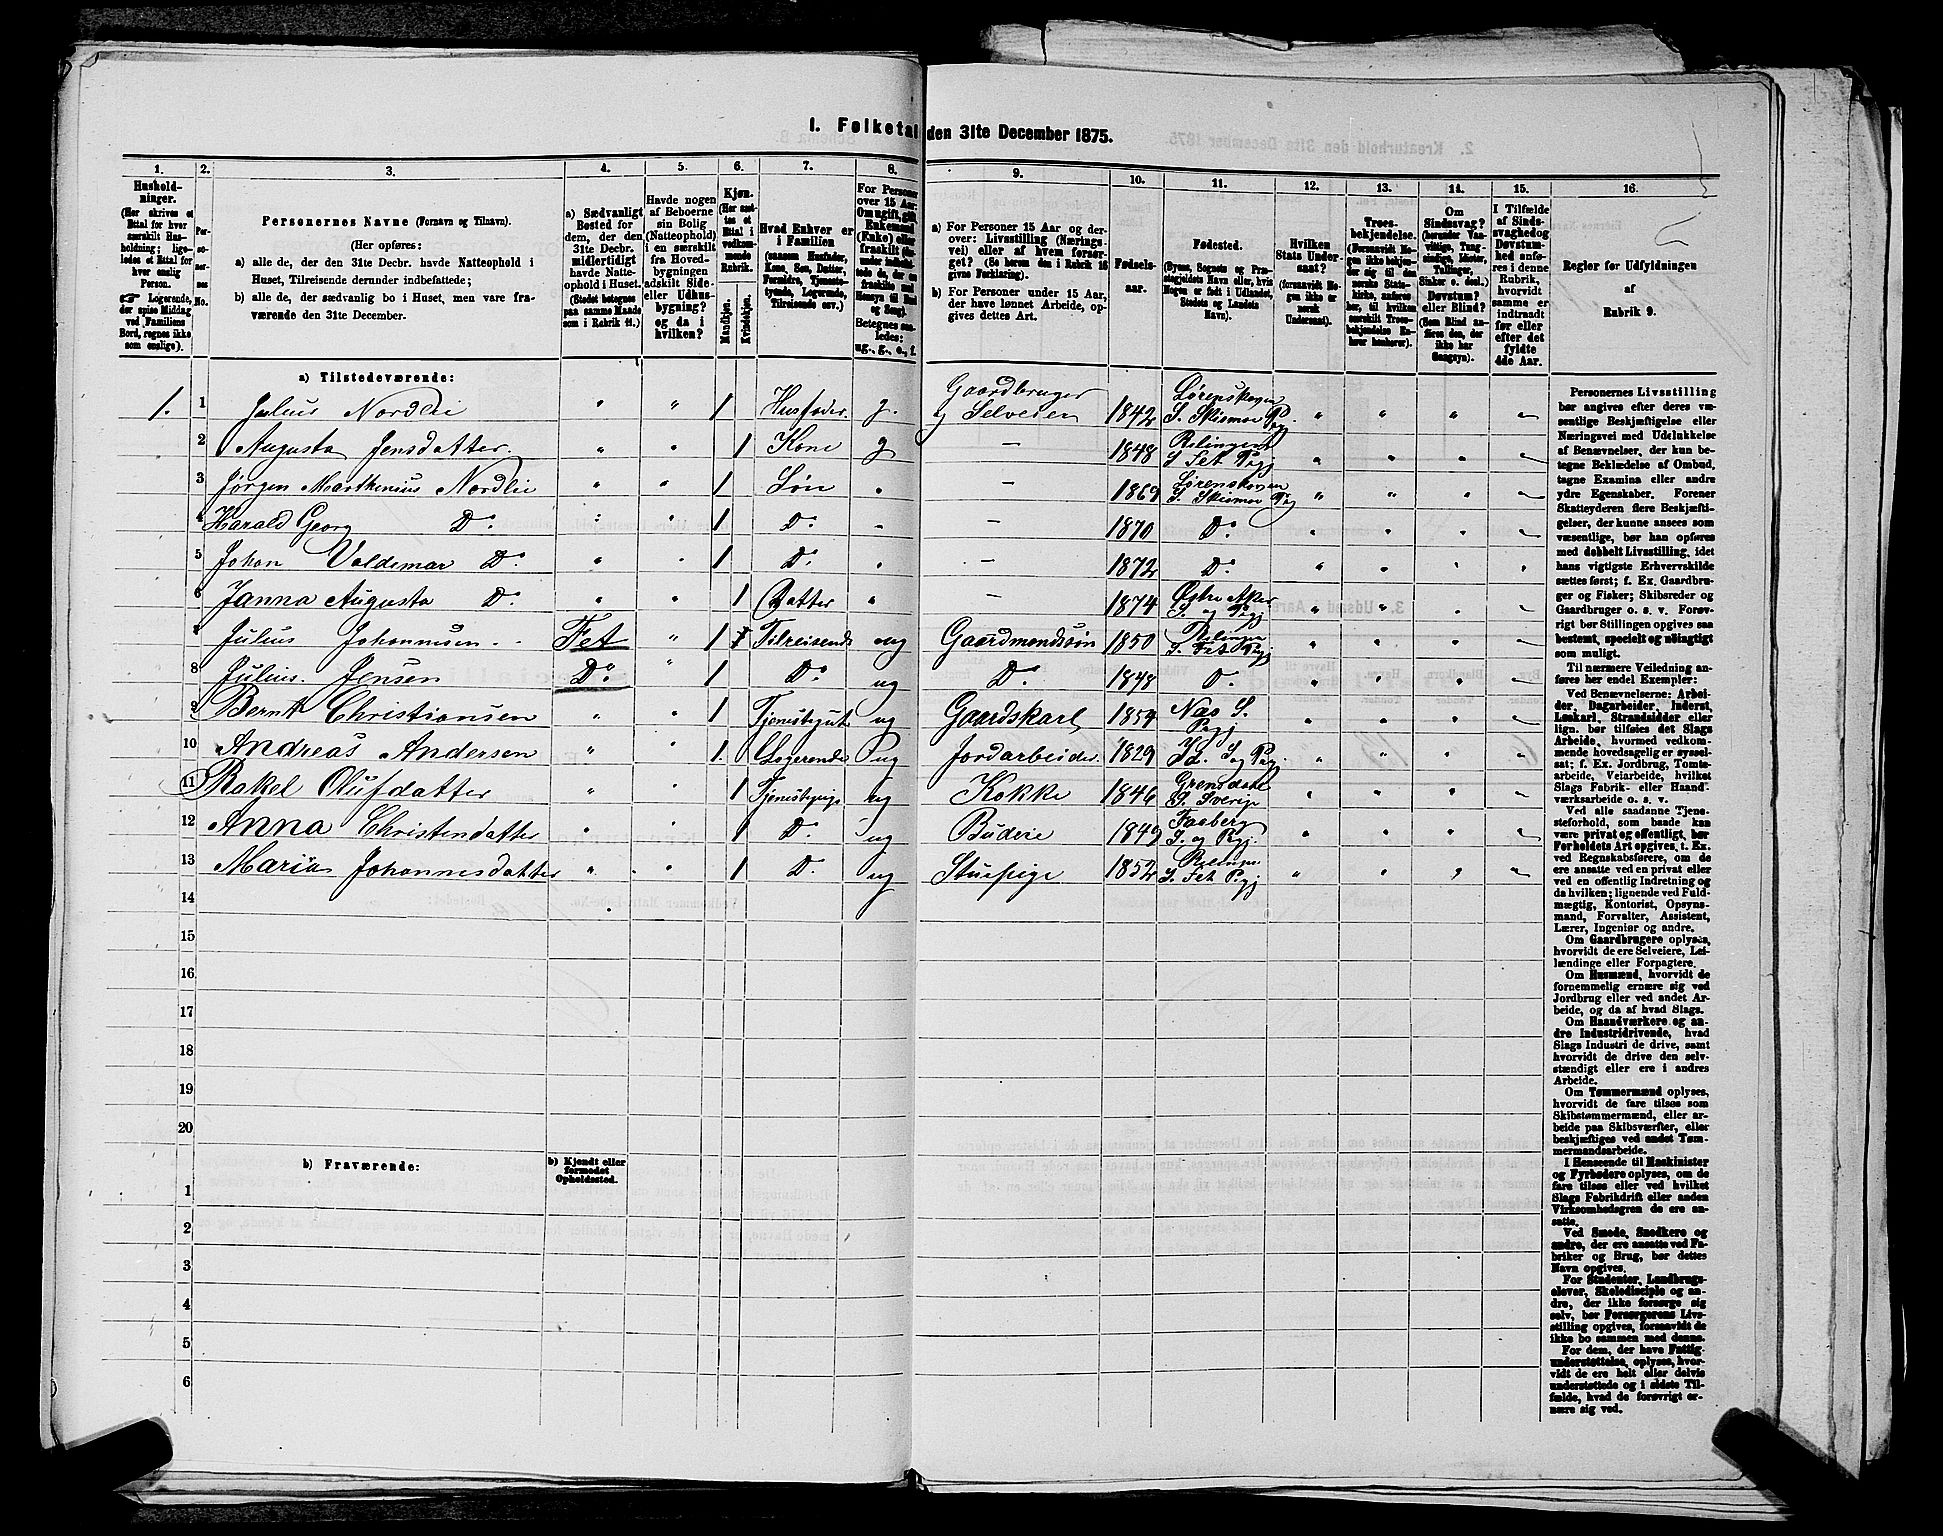 I. Folketal den 31te December 1875.
1. 2. 3. 4. 5. 6. 7. 8. 9. 10. 11. 12. 13. 14. 15. 16.
Personernes Navne (Fornavn og Tilnavn).
(Her opføres:
a) alle de, der den 31te Decbr. havde Natteophold i
Huset, Tilreisende derunder indbefattede;
b) alle de, der sædvanlig bo i Huset, men vare fra-
værende den 31te December.
a) Sædvanligt
Bosted for
dem, der den
31te Decbr.
midlertidigt
havde Natte-
ophold i Huset.
(Stedet betegnes
paa samme Maade
som i Rubrik 11.)
Havde nogen
af Beboerne
sin Bolig
(Natteophold)
i en særskilt
fra Hoved-
bygningen
adskilt Side-
eller Udhus-
bygning?
og da i
hvilken?
Kjøn.
Mandkjøn.
Kvindekjøn.
Hvad Enhver er
i Familien
a) For Personer 15 Aar og der-
over: Livsstilling (Nærings-
vei) eller af hvem forsør-
get? (Se herom den i Rubrik 16
givne Forklaring).
b) For Personer under 15 Aar,
der have lønnet Arbeide, op-
gives dettes Art.
Fødsels-
aar.
Fødested.
Hvilken
Stats Under-
saat?
Troes-
bekjendelse.
Regler for Udfyldningen
af
Rubrik 9.
a) Tilstedeværende:
1. 1 Julius Nordlie " " 1 Husfader g. Gaardbruger og Selveier 1842 Lørenskogen S. Skismoe Pgj. " " " "
2 Augusta Jensdatter. " " 1 Kone g — 1848 S Fet Pgj " " " "
3 Jørgen Marthenius Nordlie " " 1 Søn " — 1869 Lørenskogen S. Skismoe Pgj " " " "
4 Harald Georg Do " " 1 Do " — 1870 Do " " " "
5 Johan Valdemar Do " " 1 Do " — 1872 Do " " " "
6 Janna Augusta Do " " 1 Datter " — 1874 Østre Aker S. og Pgj " " " "
7 Julius Johannesen Fet " 1 Tilreisende ug Gaardmandssøn 1850 S. Fet Pgj " " " "
8 Julius Jensen Do " 1 Do ug Do 1848 Do " " " "
9 Bernt Christiansen " " 1 Tjenestegut ug Gaardskarl 1854 Næs S. Pgj " " " "
10 Andreas Andersen " " 1. Logerende ug Jordarbeider. 1829 S og Pgj. " " " "
11 Rakel Olufdatter " " 1 ug Kokke 1846 S. Sverige " " " "
12 Anna Christendatter " " 1 Do ug Budeie 1849 Faaberg S. og Pgj. " " " "
13 Maria Johannesdatter " " 1 Do ug Stuepige 1852 S. Fet Pgj " " " "
14
15
16
17
18
19
20
b) Fraværende:
b) Kjendt eller
formodet
Opholdssted.
1
2
3
4
5
6
Personernes Livsstilling
bør angives efter deres væ-
sentlige Beskjæftigelse eller
Næringsvei med Udelukkelse
af Benævnelser, der kun be-
tegne Beklædelse af Ombud,
tagne Examina eller andre
ydre Egenskaber. Forener
Skatteyderen flere Beskjæfti-
gelser, der kunne ansees som
væsentlige, bør han opføres
med dobbelt Livsstilling, idet
hans vigtigste Erhvervskilde
sættes først; f. Ex. Gaardbru-
ger og Fisker; Skibsreder og
Gaardbruger o. s. v. Forøv-
rigt bør Stillingen opgives saa
bestemt, specielt og nøiagtigt
som muligt.
Til nærmere Veiledning an-
føres her endel Exempler:
Ved Benævnelserne: Arbei-
der, Dagarbeider, Inderst,
Løskarl, Strandsidder eller
lign. bør tilføies det Slags
Arbeide, hvormed vedkom-
mende hovedsagelig er syssel-
sat; f. Ex. Jordbrug, Tomte-
arbeide, Veiarbeide, hvilket
Slags Fabrik- eller Haand-
værksarbeide o. s. v.
Ved alle saadanne Tjene-
steforhold, som baade kan
være privat og offentligt, bør
Forholdets Art opgives, t. Ex.
ved Regnskabsførere, om de
ere ansatte ved en privat eller
ved en offentlig Indretning og
da hvilken; lignende ved Fuld-
mægtig, Kontorist, Opsyns-
mand, Forvalter, Assistent,
Lærer, Ingeniør og andre.
Om Gaardbrugere oplyses,
hvorvidt de ere Selveiere, Lei-
lændinge eller Forpagtere.
Om Husmænd, hvorvidt de
fornemmelig ernære sig ved
Jordbrug eller ved andet Ar-
beide, og da af hvad Slags.
Om Haandværkere og an-
dre Industridrivende, hvad
Slags Industri de drive, samt
hvorvidt de drive den selv-
stændigt eller ere i andres
Arbeide.
Om Tømmermænd oplyses,
hvorvidt de fare tilsøs som
Skibstømmermænd, eller ar-
beide paa Skibsværfter, eller
beskjæftiges ved andet Tøm-
mermandsarbeide.
I Henseende til Maskinister
og Fyrbødere oplyses, om de
fare tilsøs eller ved hvilket
Slags Fabrikdrift eller anden
Virksomhedsgren de ere an-
satte.
Ved Smede, Snedkere og
andre, der ere ansatte ved Fa-
briker og Brug, bør dettes
Navn opgives.
For Studenter, Landbrugs-
elever, Skoledisciple og an-
dre, der ikke forsørge sig
selv, bør Forsørgerens Livs-
stilling opgives, forsaavidt de
ikke bo sammen med denne.
For dem, der have Fattig-
understøttelse, oplyses, hvor-
vidt de ere helt eller delvis
understøttede og i sidste Til-
fælde, hvad de forøvrigt er-
nære sig ved.